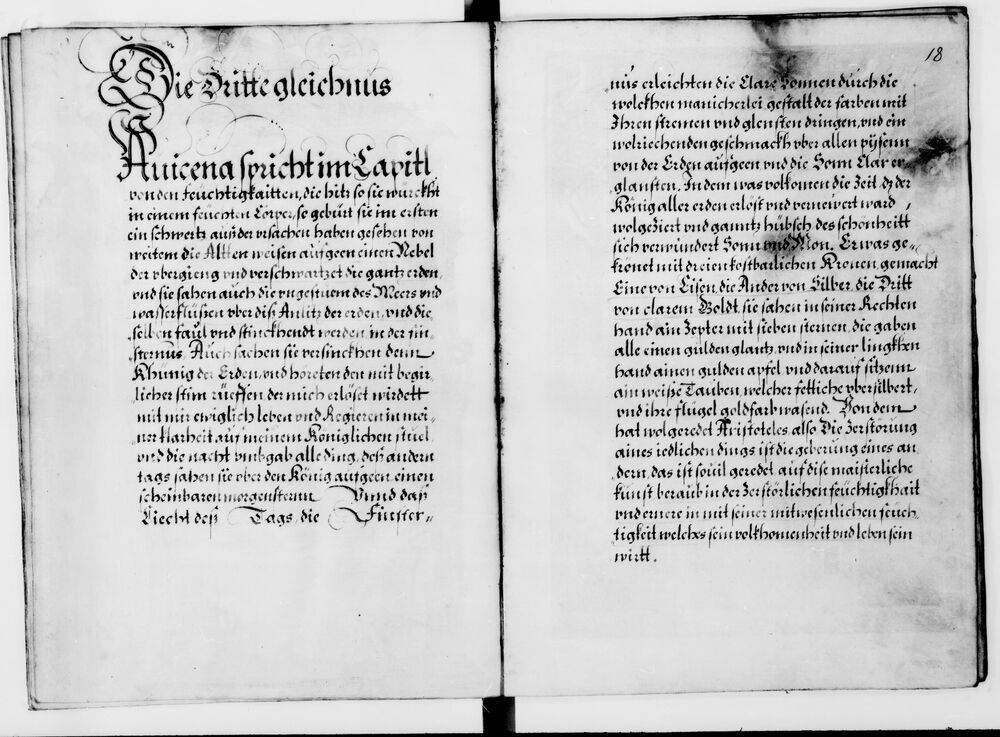 Die Dritte gleichnus
Auicena spricht im Capitl
von den feüchtigkaitten, die hitz so sie würckht
in einem feüchten Cörper, so gebürt sie im ersten
ein schwertz auß der vrsachen haben gesehen von
weitem die Altten weisen aufgeen einen Nebel
der vbergieng vnd verschwartzet die gantz erden
vnd sie sahen auch die vngestuem des Meers vnd
wasserflüßen vber diß Anlitz der erden, vnd die
selben faul vnd stinckhendt werden, in der fin
sternus, Auch sachen sie versinckhen denn
Khünig der Erden, vnd höreten den mit begir
licher stim rüeffen der mich erlöset wirdett
mit mir ewiglich leben vnd Regieren in mei
ner klarheit auf meinem Königlichen stuel
vnd die nacht vmbgab alle ding, deß andern
tags sahen sie vber den König aufgeen einen
scheinbaren morgensternn Vnnd daß
Liecht deß Tags, die Finster-
18
nüs erleichten die Clare Sonnen dürch die
wolckhen manicherlei gestalt der farben mit
Ihren stremen vnd glensten dringen, vnd ein
wolriechenden geschmackh vber allen pysenn
von der Erden aufgeen vnd die Sonn Clar er-
glansten. In dem was volkomen die Zeit dz der
König aller erden erlöst vnd vernewert ward,
wolgeziert vnd ganntz hübsch des schönheitt
sich verwündert Sonn vnd Mon. Er was ge-
krönet mit dreien kostbarlichen Kronen, gemacht
Eine von Eisen, die Ander von Silber, die Dritt
von clarem Goldt, sie sahen in seiner Rechten
hand ain Zepter mit sieben sternen, die gaben
alle einen gülden glantz, vnd in seiner lingkhen
hand ainen gulden apfel vnd darauf sitzenn
ain weiße Tauben, welcher fettiche vbersilbert,
vnd ihre flügel goldfarb wasend. Von dem
hat wolgeredet Aristoteles also Die Zerstörung
aines iedlichen dings ist die geberung eines an
dern, das ist souil geredet auf dise maisterliche
kunst beraub in der zerstörlichen feüchtigkhait
vnd ernere in mit seiner mitwesenlichen feuch
tigkeit welches sein volkhomenheit vnd leben sein
wirtt.